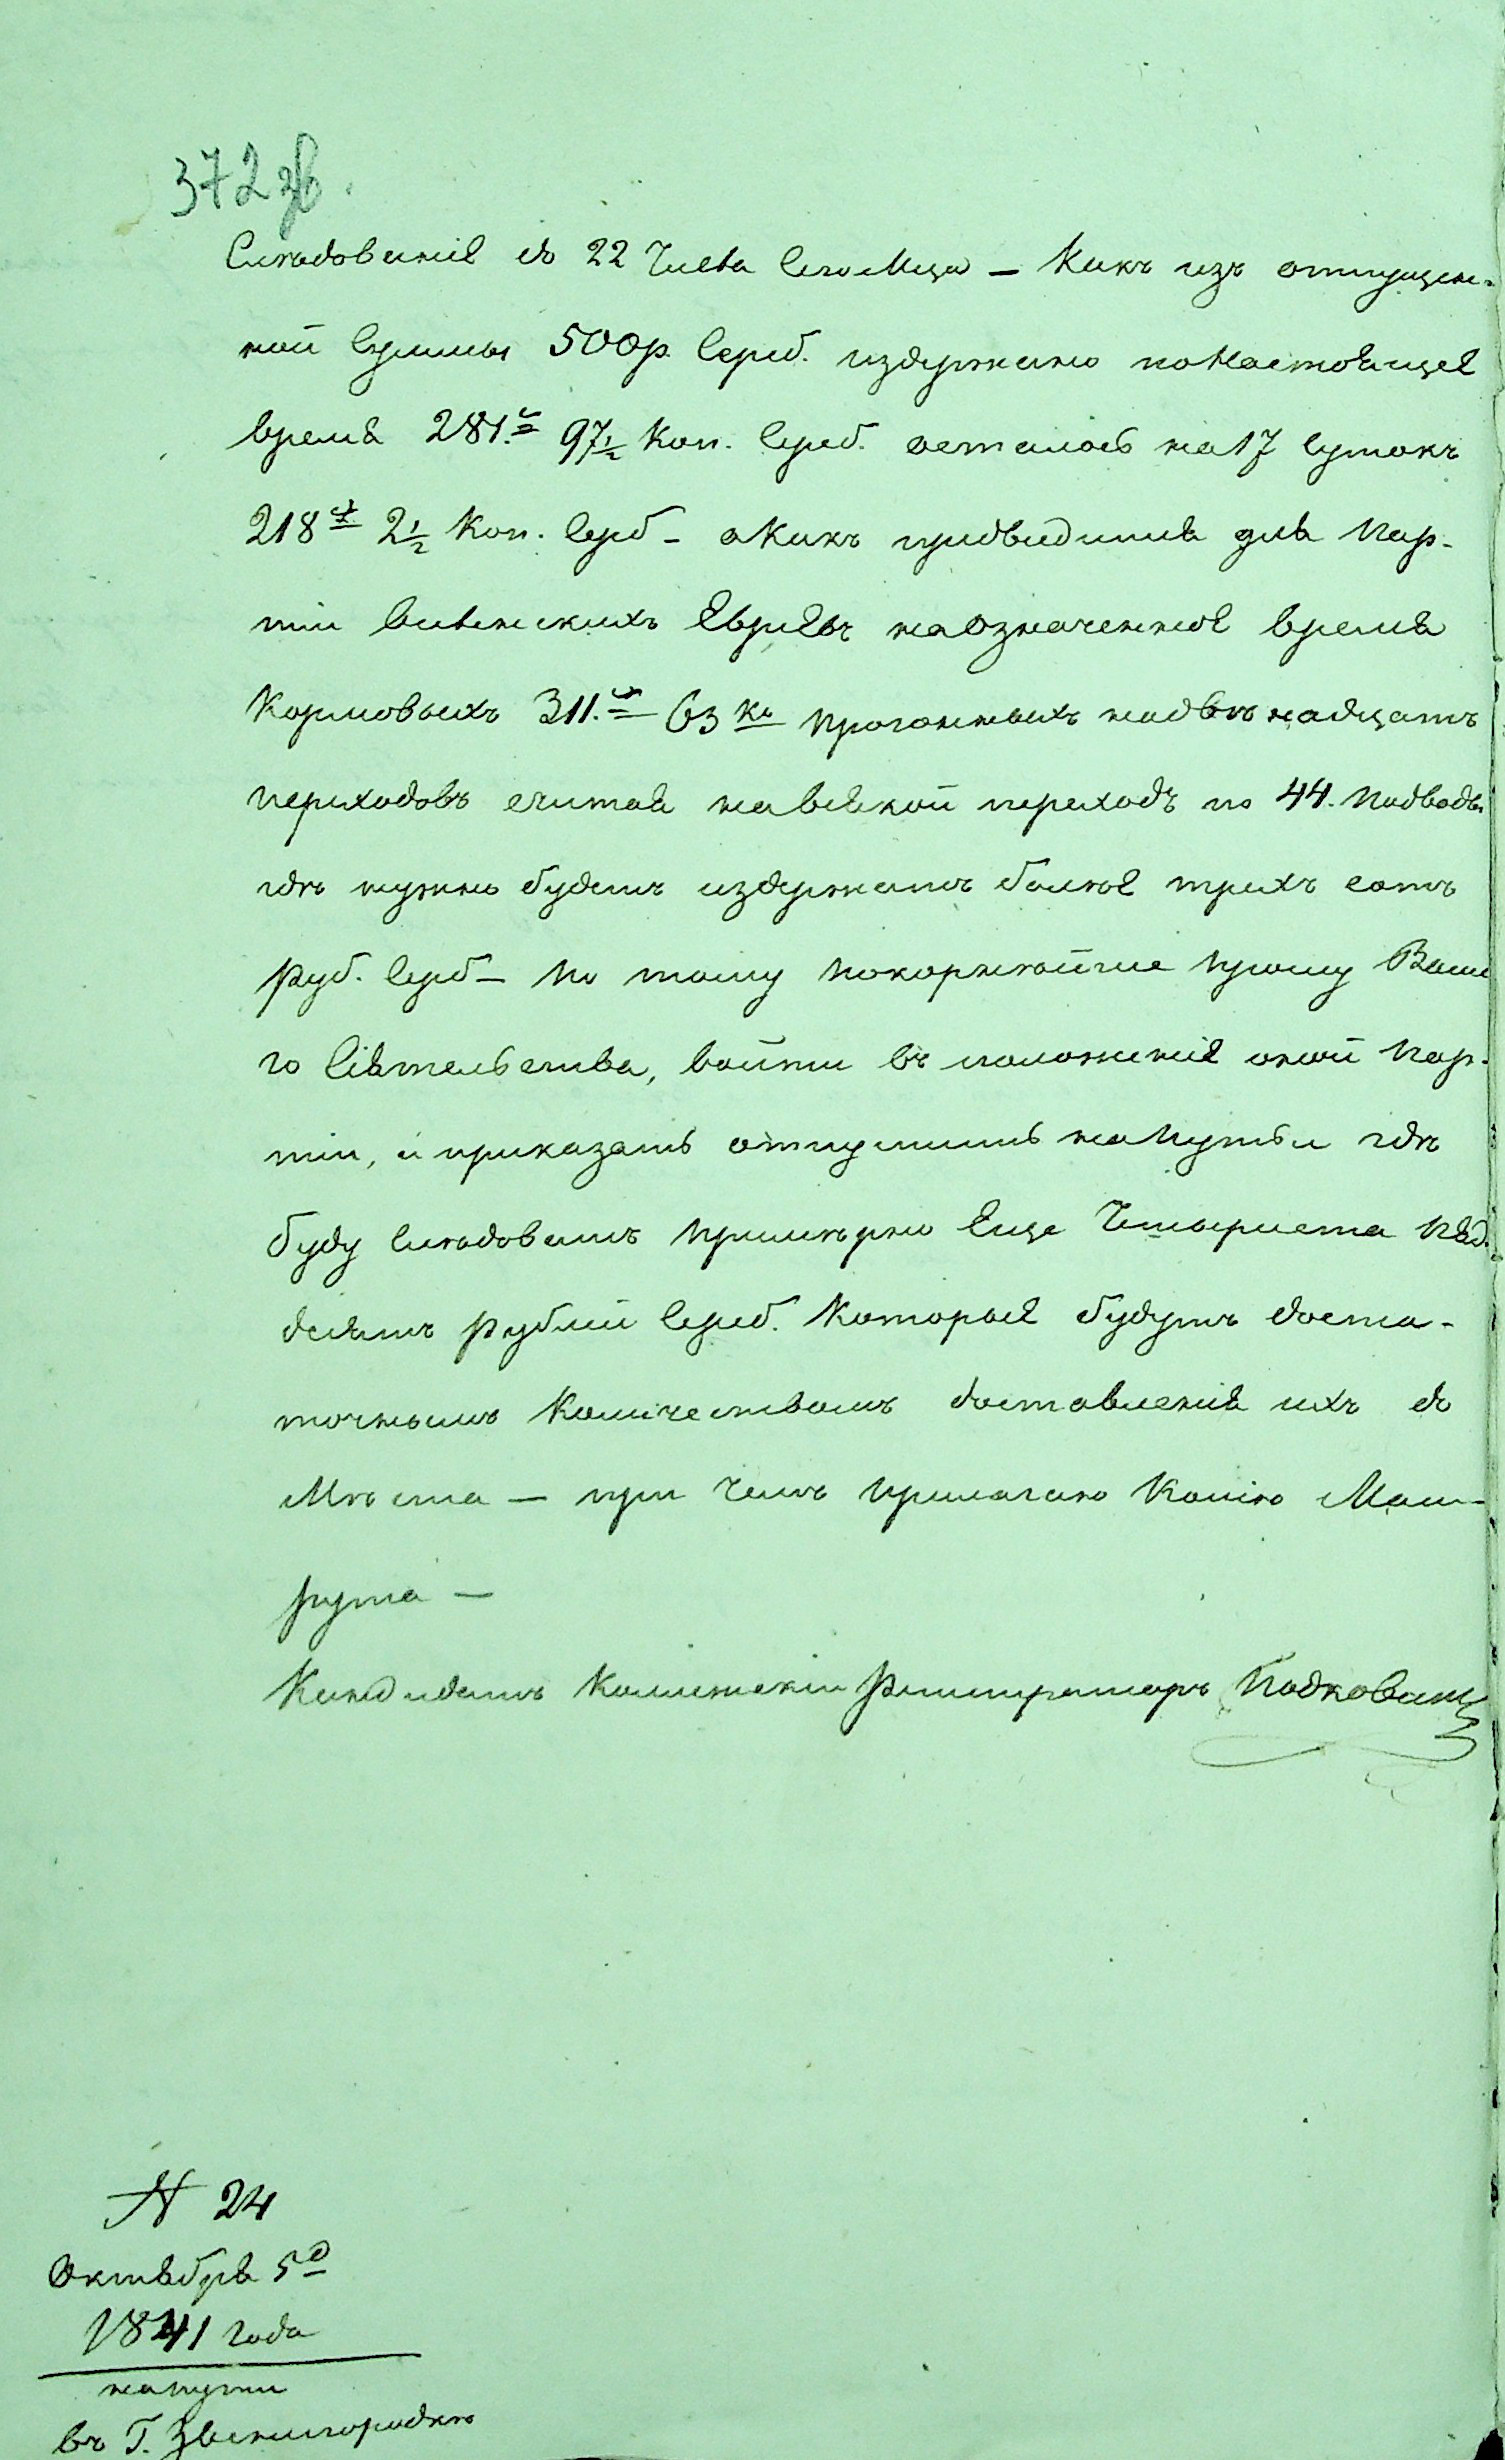 372 зв.
Слѣдованіе до 22 Числа Сего Мца — Какъ изъ отпущен-
ной Суммы 500 р. Сереб. издержано по Настоящее
время 281. р 97 1/2 Коп. Сереб. осталось на 17 Сутокъ
218 р 2 1/2 Коп. Сереб — а Какъ предвидится для Пар-
тіи Виленскихъ Евреевъ на означенное время
Кормовыхъ 311. р 63 к прогонныхъ на двѣнадцать
переходовъ считая на всякой переходъ по 44. подводы
гдѣ нужно будетъ издержать болѣе трехъ сотъ
Руб. Сереб — По тому Покорнѣйше Прошу Ваше
го Сіятельства, войти въ положеніе оной Пар-
тіи, и приказать отпустить на Путьи гдѣ
буду Слѣдовать Примѣрно Еще Четыриста Пяд.
десятъ Рублей Сереб. Которые будутъ доста-
точнымъ Количествомъ доставленія ихъ до
Мѣста — при Чемъ Прилагаю Копію Мар-
рута —
Кандидатъ Коллежскій Регистраторъ
N 24
Октября 5 д
1841 года
на пути
въ Г. Звенигородкѣ